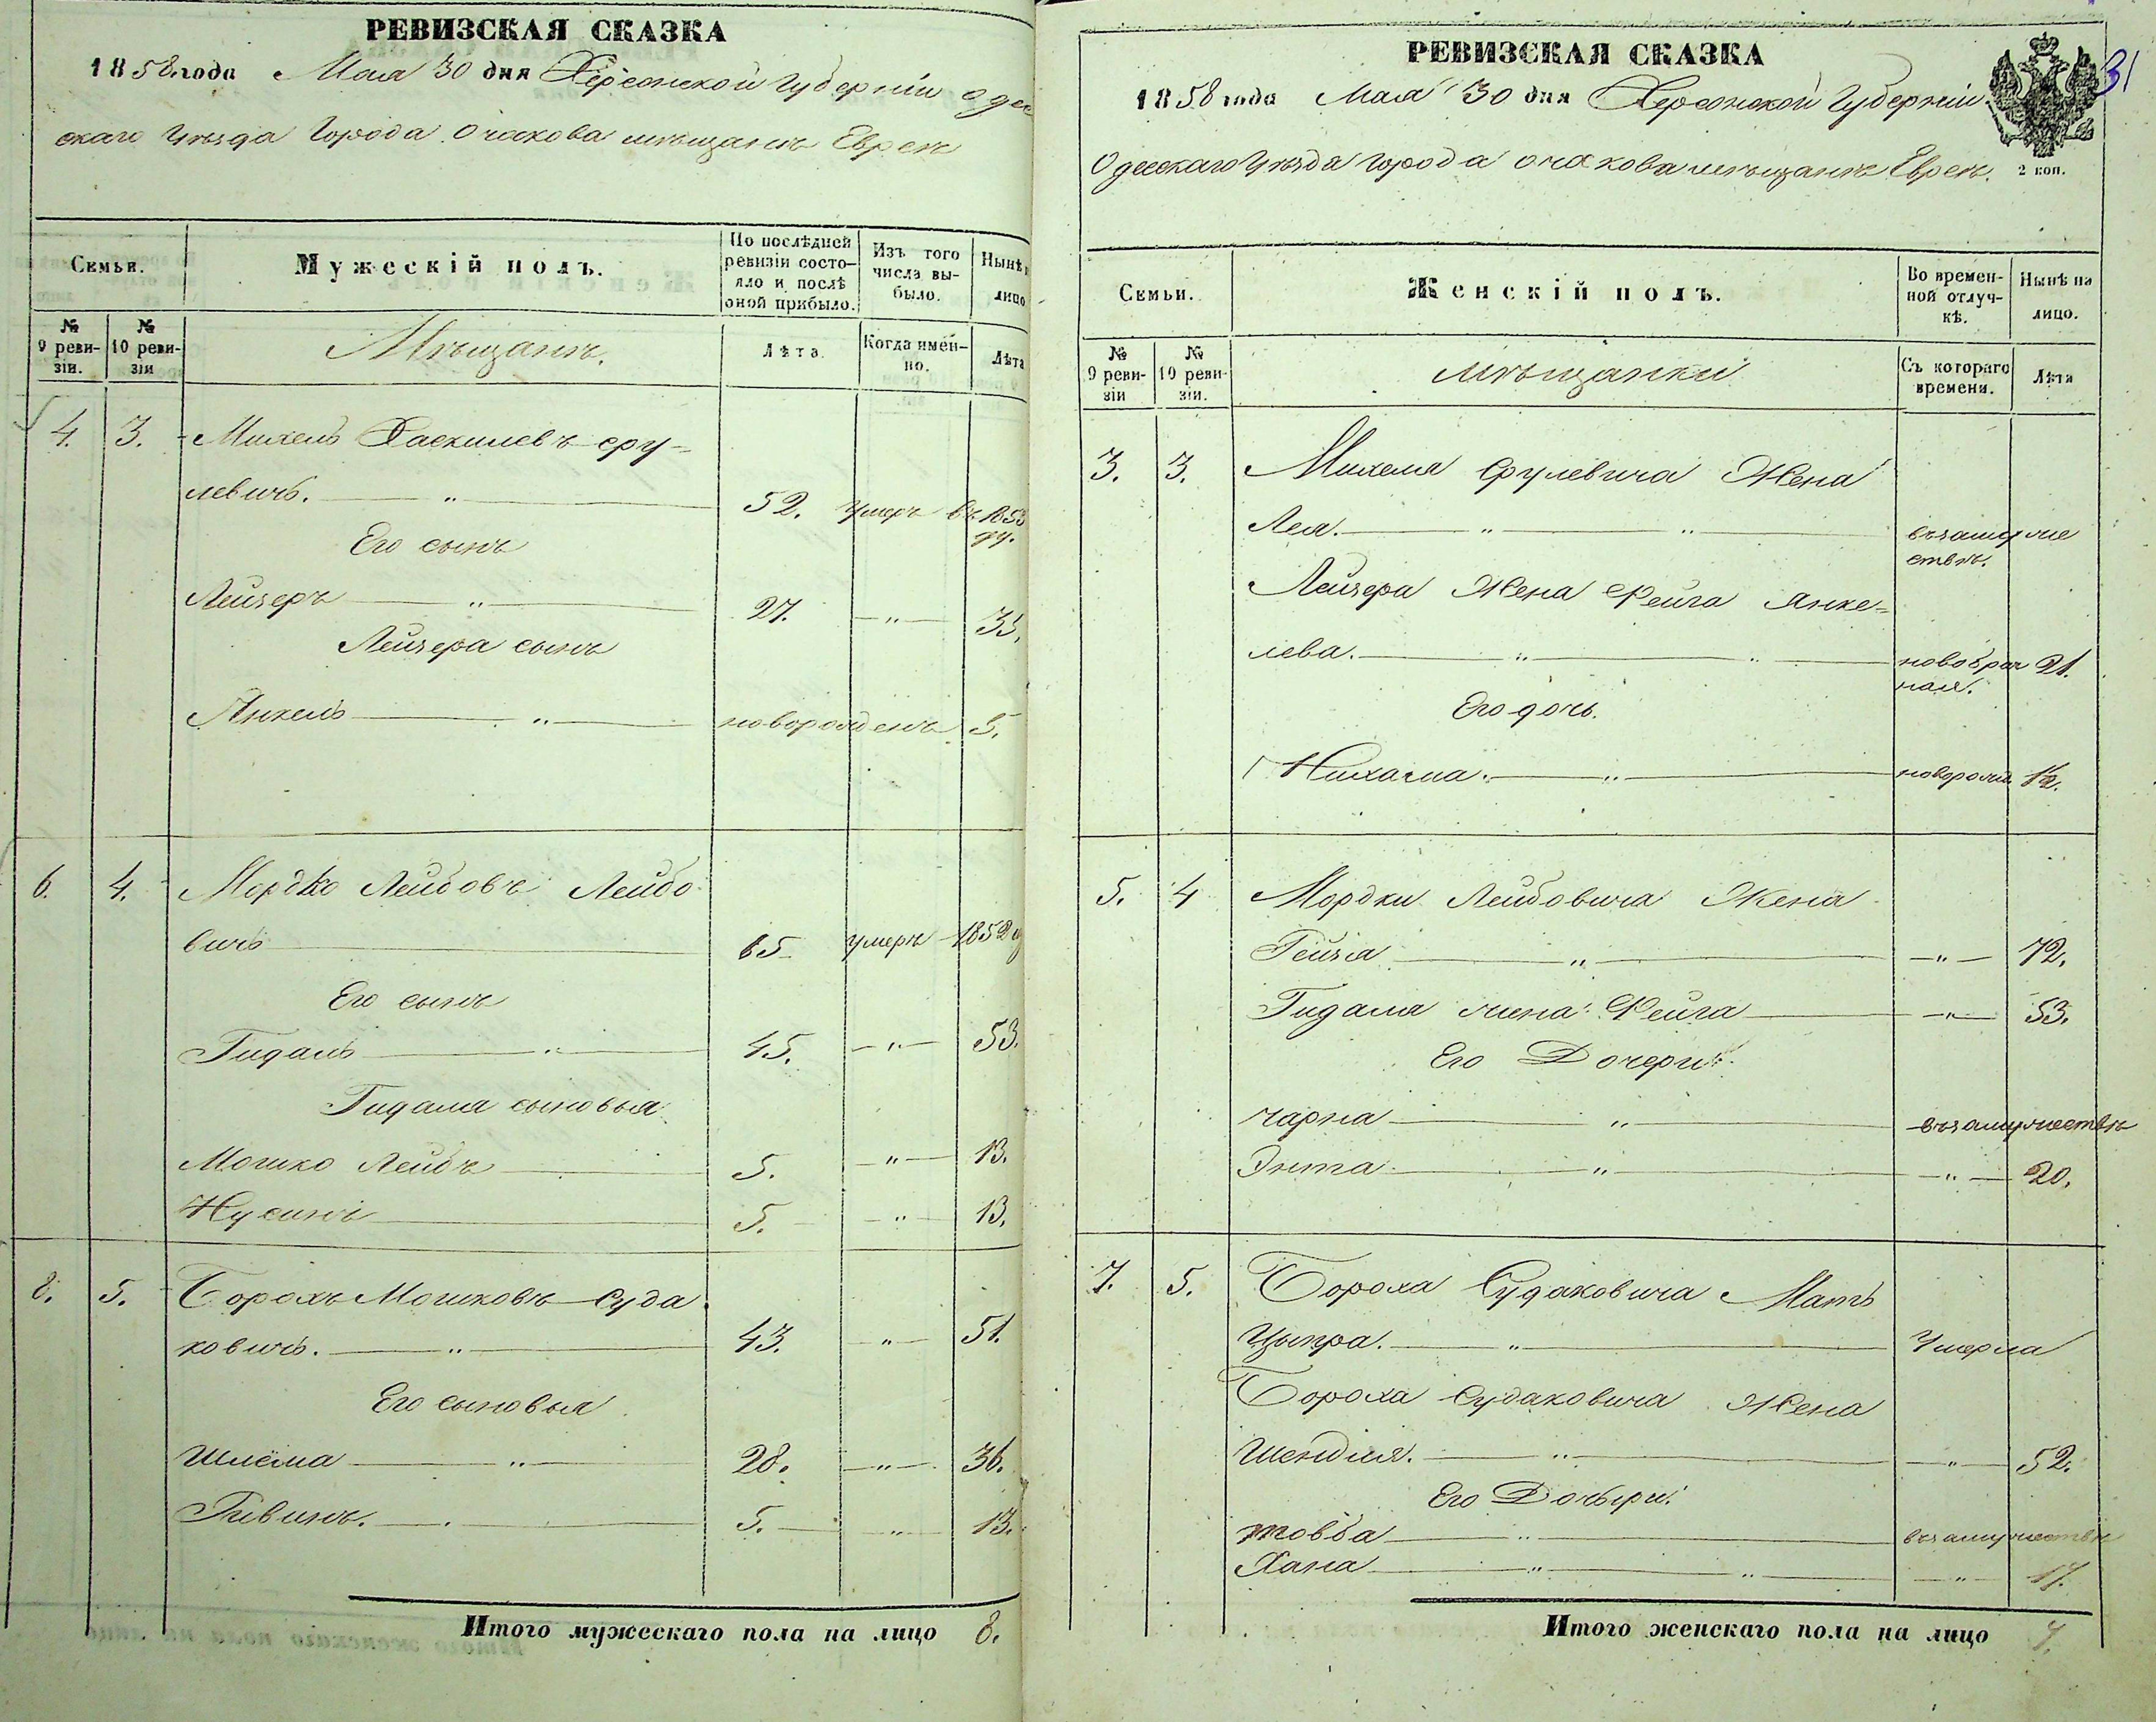 РЕВИЗСКАЯ СКАЗКА
1858 года Мая 30 дня Херсонской Губерніи Оде
скаго Уѣзда Города Очакова мѣщанъ Евреи
Семьи.
Мужескій полъ.
По послѣдней ревизіи состояло и послѣ оной прибыло.
Изъ того числа выбыло.
Нынѣ лицо
№ 9 ревизіи.
№ 10 ревизіи
Мѣщанъ.
Лѣта.
Когда именно.
Лѣта
4. 3. Михель Хаскилевъ Сру-
левичъ. " 52. умеръ въ 1853
гу.
Его сынъ
Лейзеръ " 27. " 35.
Лейзера сынъ
Янкель " новорожденъ 5.
6. 4. Мордко Лейбовъ Лейбо
вичъ 65 умеръ 1852
Его сынъ
Гидаль " 45. " 53.
Гидаля сыновья
Мошко Лейбъ 5. " 13.
Нусинъ 5. " 13.
8. 5. Борохъ Мошковъ Суда
ковичъ. " 43. " 51.
Его сыновья
Шлёма " 28. " 36.
Рывинъ. 5. " 13.
Итого мужескаго пола на лицо 8.
РЕВИЗСКАЯ СКАЗКА
31
1858 года Мая 30 дня Херсонской Губерніи
Одесскаго Уѣзда Города Очакова мѣщанъ Евреи.
2 коп.
Семьи.
Женскій полъ.
Во временной отлучкѣ.
Нынѣ на лицо.
№ 9 ревизіи
№ 10 ревизіи.
мѣщанки
Съ котораго времени.
Лѣта
3. 3. Михеля Срулевича Жена
Лея. " " въ замуже
ствѣ.
Лейзера Жена Фейга Янке-
лева. " " новобрач 21.
ная.
Его дочь.
Нихама. " новорож. 1½.
5. 4 Мордки Лейбовича Жена
Рейзя " " 72.
Гидаля жена Фейга " 53.
Его Дочери
Чарна " въ замужествѣ
Энта " " 20.
7. 5. Бороха Судаковича Мать
Цыпра. " Умерла
Бороха Судаковича Жена
Шендля. " " 52.
Его Дочыри.
товба " въ замужествѣ
Хана " " " 17.
Итого женскаго пола на лицо 7.